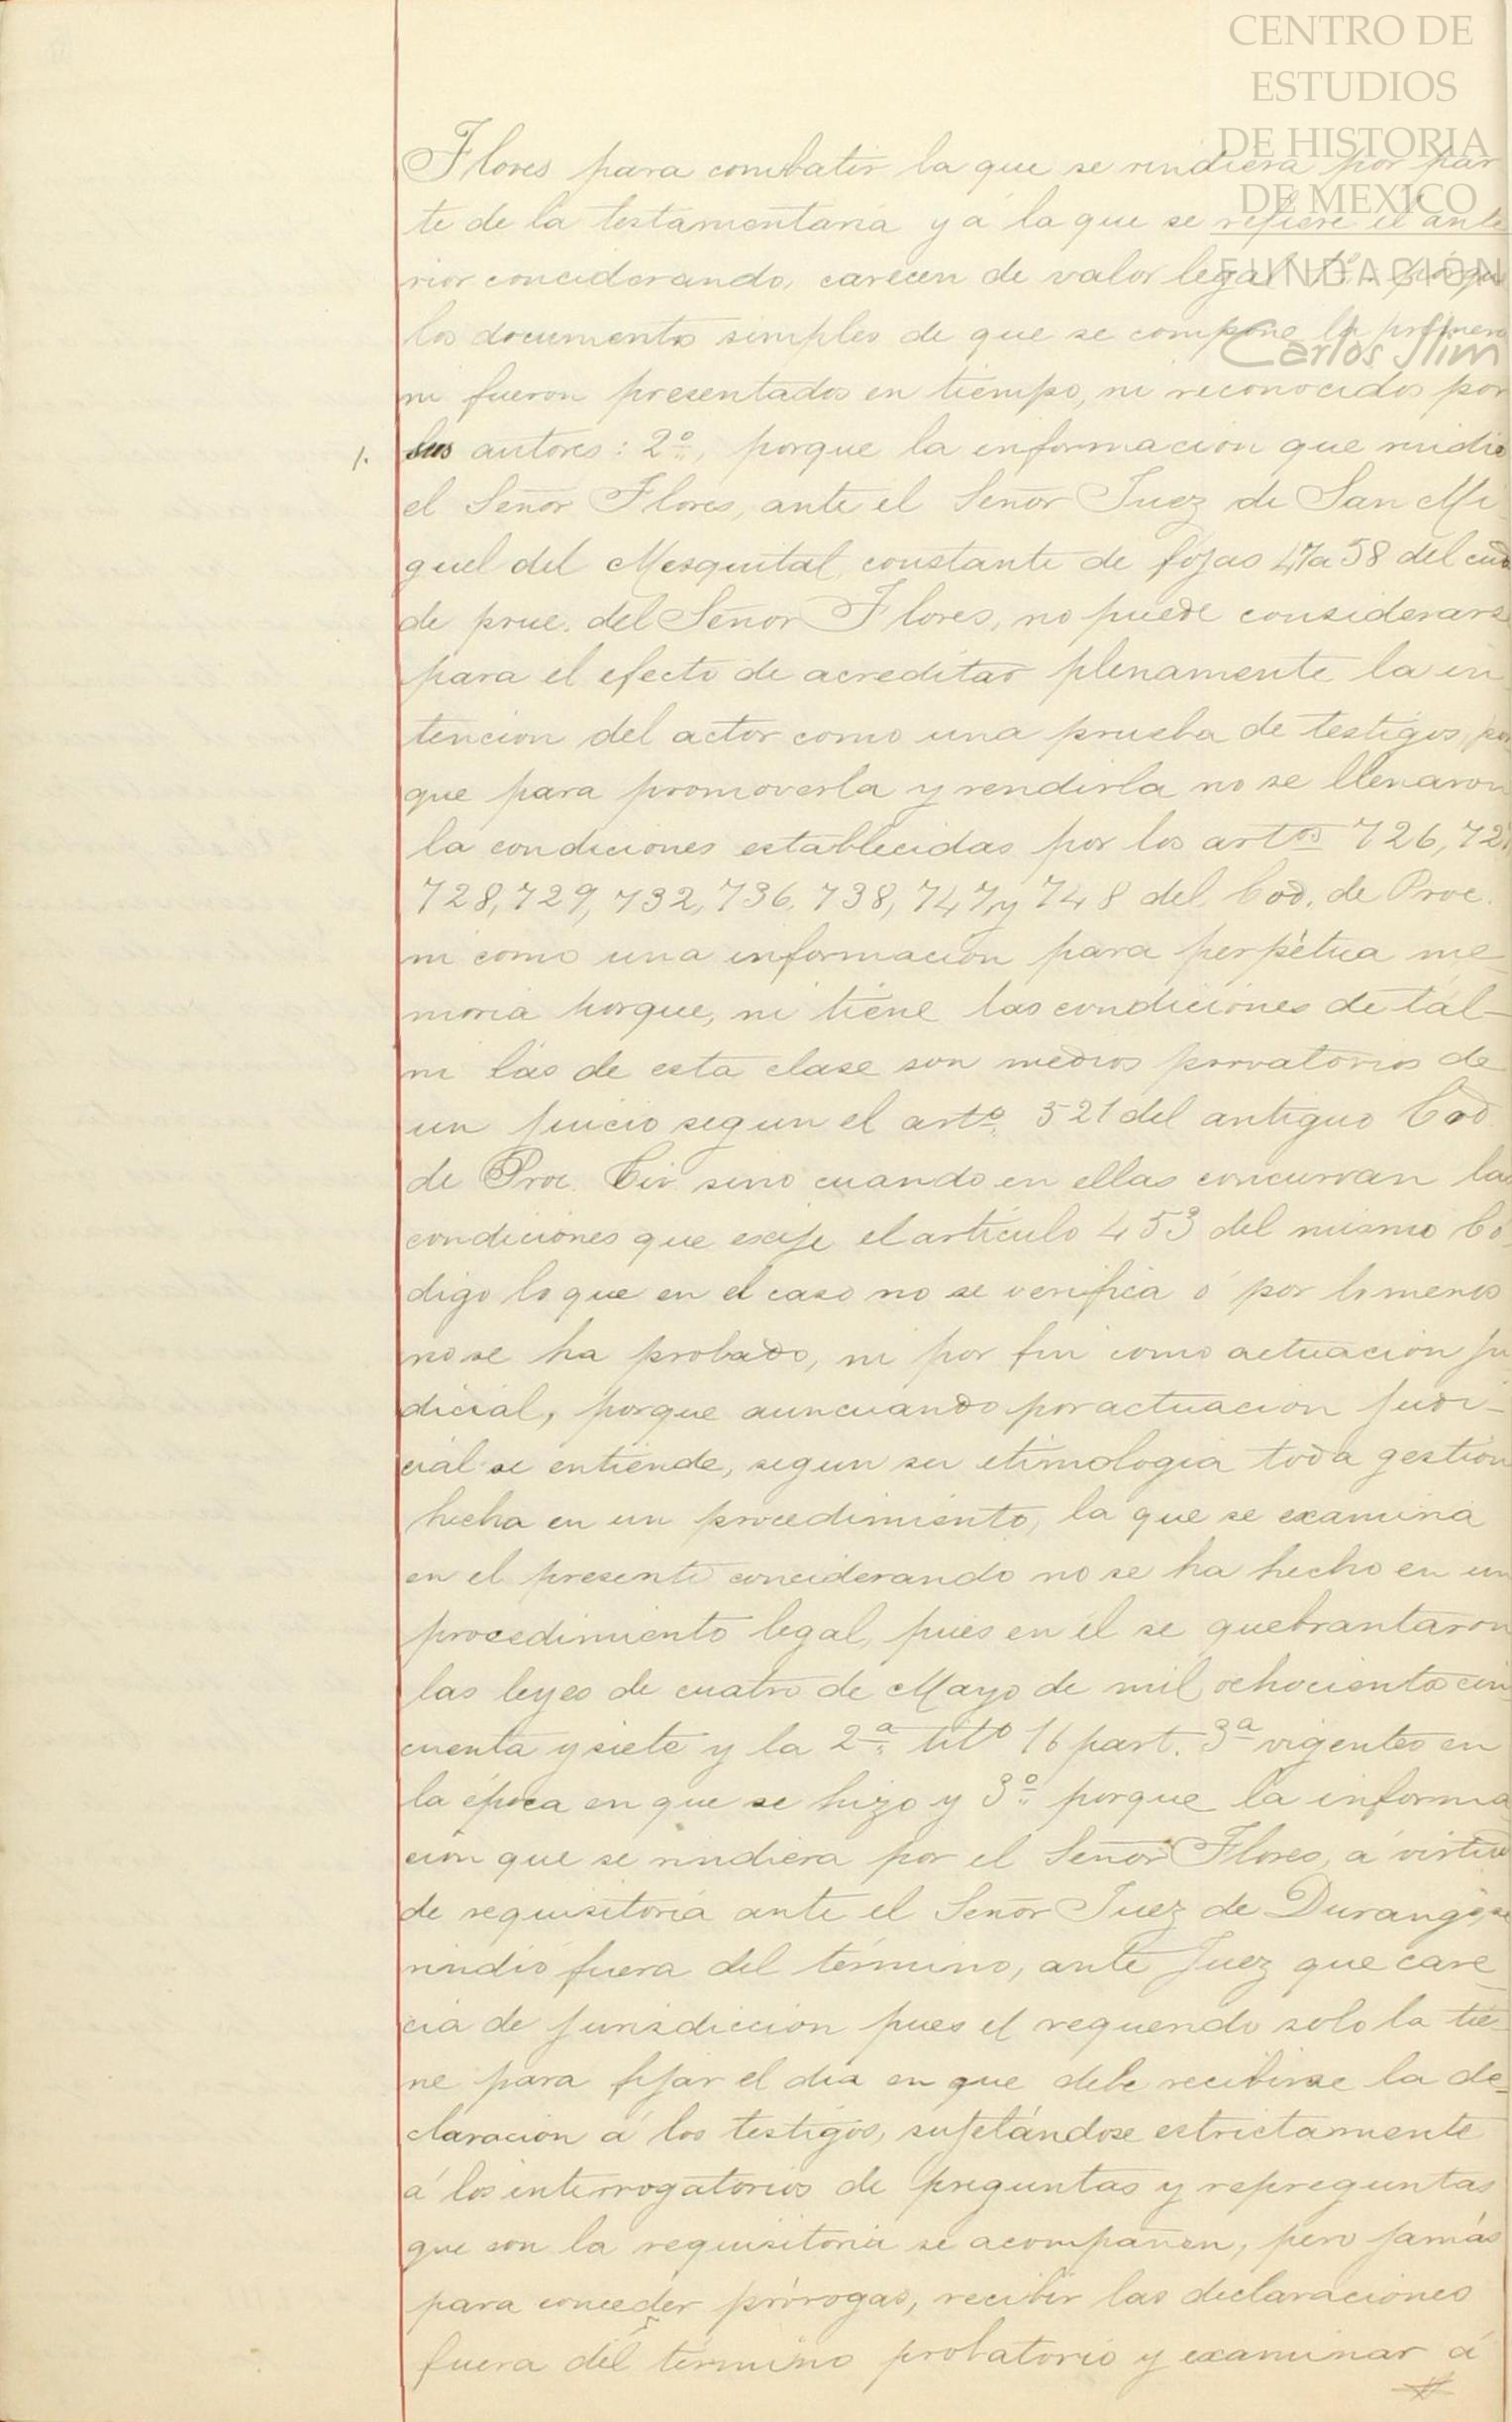 CENTRO DE
ESTUDIOS
DE HISTORIA
DE MEXICO
FUNDACIÓN
Carlos Slim
Flores para combatir la que se rindiera por par
te de la testamentaria y á la que se refiere el ante
rior conciderando, carecen de valor legal 1º porque
los documentos simples de que se compone la primera
ni fueron presentados en tiempo, ni reconocidos por
1. sus autores: 2º, porque la informacion que rindió
el Señor Flores, ante el Señor Juez de San Mi
guel del Mesquital constante de fojas 47 a 58 del cuad
de prue. del Señor Flores, no puede considerarse
para el efecto de acreditar plenamente la in
tencion del actor como una prueba de testigos, por
que para promoverla y rendirla no se llenaron
la condiciones establecidas por los artos 726, 72
728, 729, 732, 736, 738, 747, y 748 del Cod. de Proc.
ni como una informacion para perpétua me
moria porque, ni tiene las condiciones de tal
ni las de esta clase son medios provatorios de
un juicio segun el arto. 521 del antiguo Cod
de Proc. Civ sino cuando en ellas concurran las
condiciones que exije el artículo 453 del mismo Có
digo lo que en el caso no se verifica ó por lo menos
no se ha probado, ni por fin como actuacion ju
dicial, porque aun cuando por actuacion judi-
cial se entiende, segun su etimologia toda gestion
hecha en un procedimiento, la que se examina
en el presente conciderando no se ha hecho en un
procedimiento legal, pues en él se quebrantaron
las leyes de cuatro de Mayo de mil ochocientos cin
cuenta y siete y la 2ª tito 16 part. 3ª vigentes en
la época en que se hizo y 3º porque la informa
cion que se rindiera por el Señor Flores, á virtud
de requisitoria ante el Señor Juez de Durango, se
rindió fuera del término, ante Juez que care
cia de jurisdiccion pues el requerido solo la tie
ne para fijar el dia en que debe recibirse la de
claracion á los testigos, sujetándose estrictamente
á los interrogatorios de preguntas y repreguntas
que con la requisitoria se acompañen, pero jamás
para conceder prórogas, recibir las declaraciones
fuera del término probatorio y examinar á